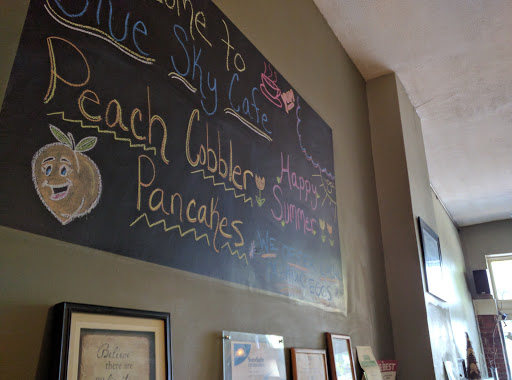 Welcome to
Blue Sky Cafe
Peach Cobbler
Pancakes
Happy
Summer
Believe
there are